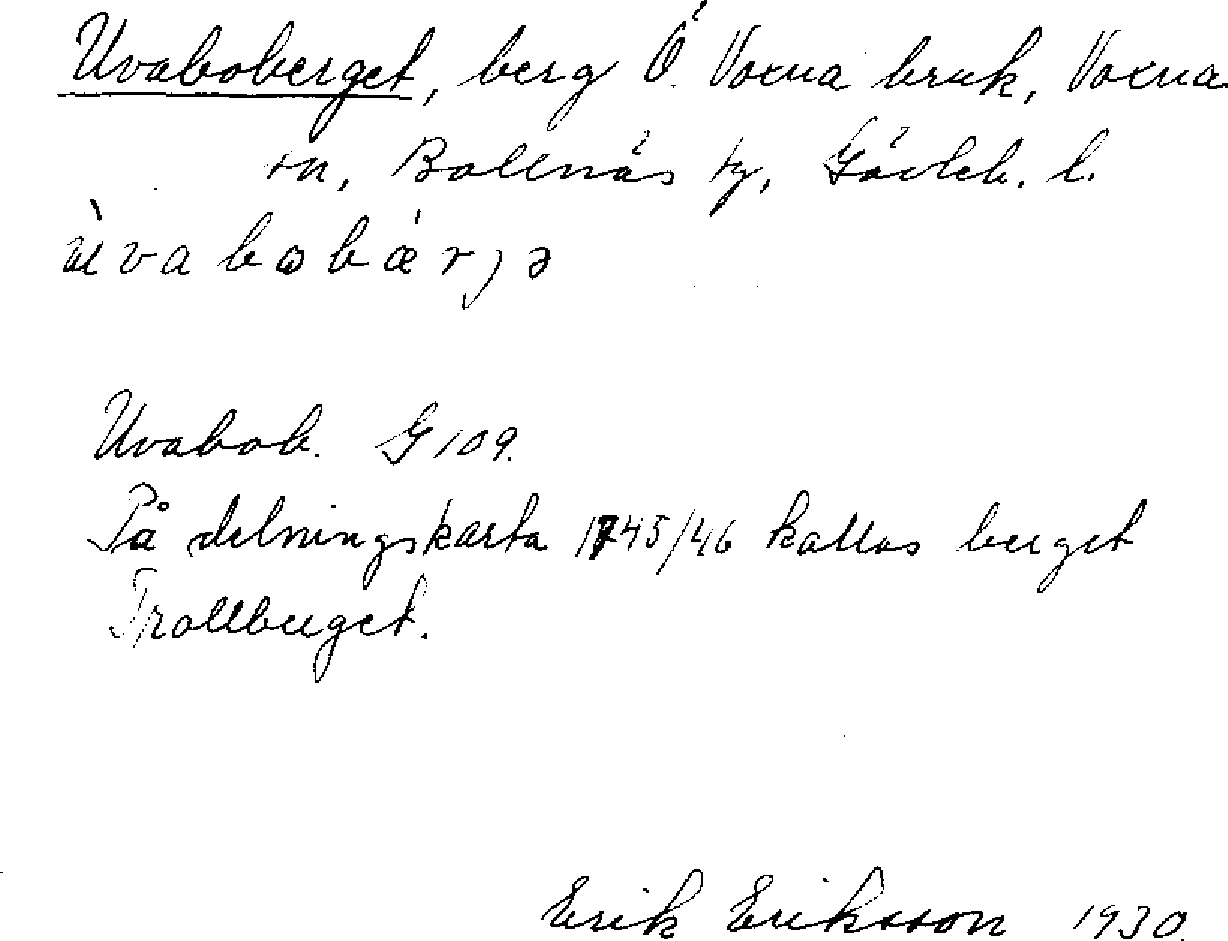 Uvaboberget, berg Ö. Voxna bruk, Voxna
sn, Bollnäs tg, Gävleb. l.
Uvabob. G 109.
På delningskarta 1745/46 kallas berget
Trollberget.
Erik Eriksson 1930.